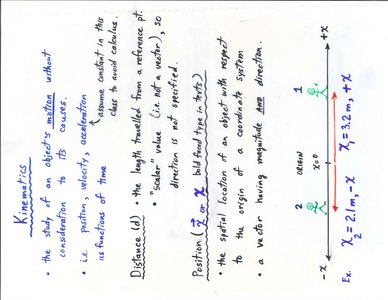 Kinematics
• the study of an object's motion without
consideration to its causes.
• i.e. position, velocity, acceleration
as functions of time
assume constant in this
class to avoid calculus.
Distance (d) • the length travelled from a reference pt.
• "scalar" value (i.e. not a vector), so
direction is not specified.
Position (x⃗ or x bold faced type in texts)
• the spatial location of an object with respect
to the origin of a coordinate system
• a vector having magnitude AND direction.
2 ORIGIN 1
-x x=0 +x
Ex. x₂ = 2.1m, -x x₁ = 3.2m, +x